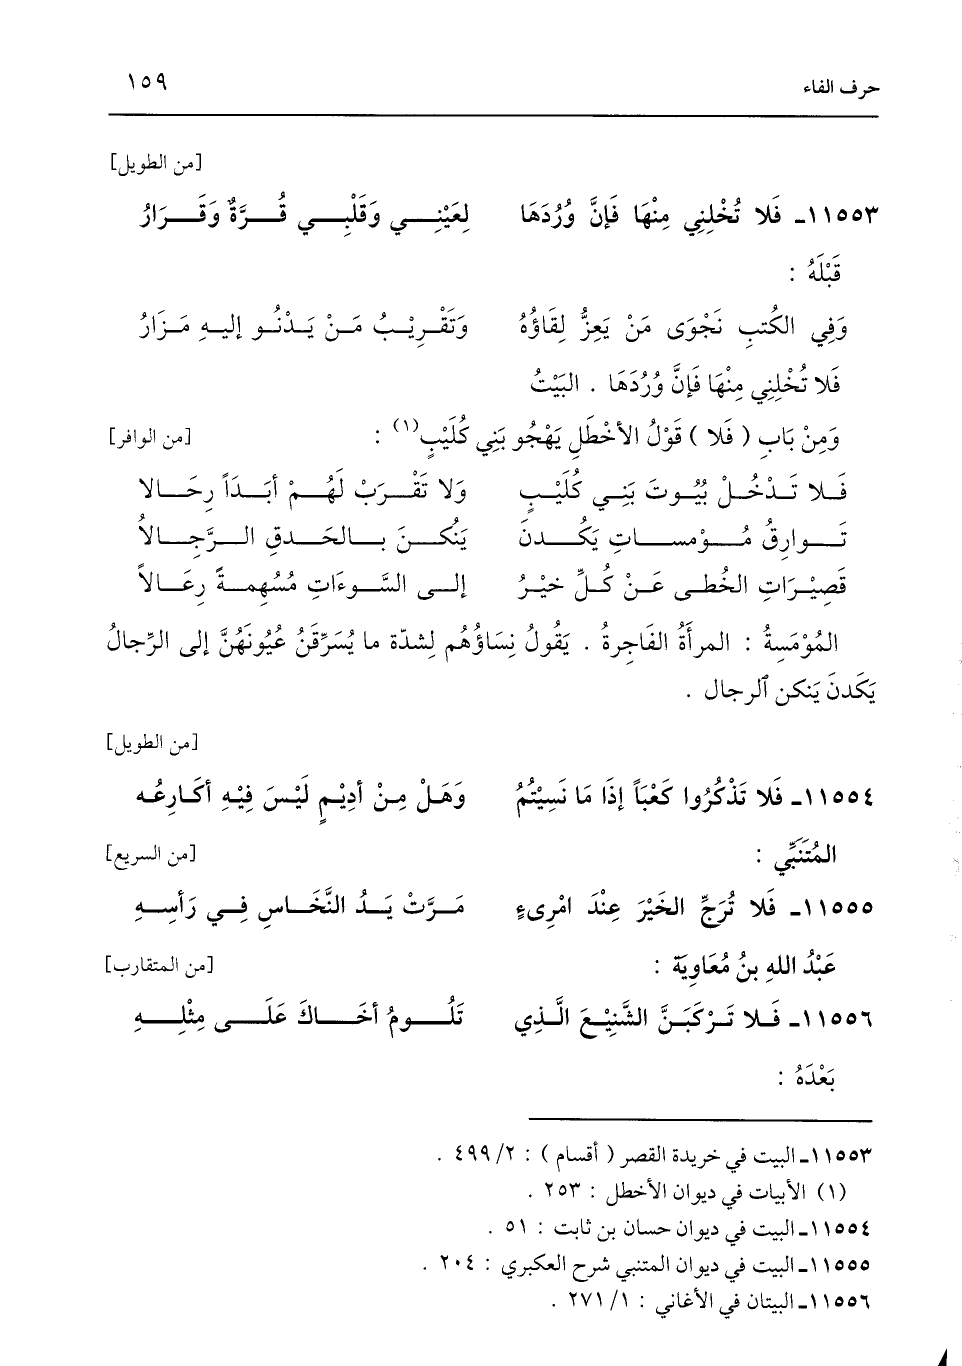 حرف الفاء ١٥٩
[من الطويل]
١١٥٥٣ـ فَلا تُخْلِنِي مِنْهَا فَإِنَّ وُرُدَهَا لِعَيْنِـي وَقَلْبِـي قُـرَّةٌ وَقَـرَارُ
قَبْلَهُ :
وَفِي الكُتبِ نَجْوَى مَنْ يَعِزُّ لِقَاؤُهُ وَتَقْرِيْبُ مَنْ يَدْنُو إليهِ مَزَارُ
فَلا تُخْلِنِي مِنْهَا فَإِنَّ وُرُدَهَا . البَيْتُ
وَمِنْ بَابِ ( فَلا ) قَوْلُ الأخْطَلِ يَهْجُو بَنِي كُلَيْبٍ(١) : [من الوافر]
فَـلا تَدْخُـلْ بُيُوتَ بَنِـي كُلَيْبٍ وَلا تَقْـرَبْ لَهُـمْ أبَـداً رِحَـالا
تَـوارِقُ مُـوْمسـاتٍ يَكُـدنَ يَنُكـنَ بـالحَـدقِ الـرَّجـالاُ
قَصِيْرَاتِ الخُطى عَـنْ كُـلِّ خيْرُ إلـى السَّوءَاتِ مُسُهمـةً رِعَـالاً
المُوْمَسِةُ : المرأَةُ الفَاجِرةُ . يَقُولُ نِسَاؤُهُم لِشدّة ما يُسَرِّقنُ عُيُونَهُنَّ إلى الرِّجالُ
يَكَدنَ يَنكن ٱلرجال .
[من الطويل]
١١٥٥٤ـ فَلا تَذْكُرُوا كَعْبَاً إذَا مَا نَسِيْتُمُ وَهَلْ مِنْ أدِيْمٍ لَيْسَ فِيْهِ أكَارِعُه
المُتَنَبِّي : [من السريع]
١١٥٥٥ـ فَلا تُرَجِّ الخَيْرَ عِنْدَ امْرِىءٍ مَـرَّتْ يَـدُ النَّخَـاسِ فِـي رَأسِـهِ
عَبْدُ اللهِ بنُ مُعَاوِيَة : [من المتقارب]
١١٥٥٦ـ فَـلا تَـرْكَبَـنَّ الشَّنِيْـعَ الَّـذِي تَلُـومُ أخَـاكَ عَلَـى مِثْلِـهِ
بَعْدَهُ :
١١٥٥٣ـ البيت في خريدة القصر ( أقسام ) : ٢/ ٤٩٩ .
(١) الأبيات في ديوان الأخطل : ٢٥٣ .
١١٥٥٤ـ البيت في ديوان حسان بن ثابت : ٥١ .
١١٥٥٥ـ البيت في ديوان المتنبي شرح العكبري : ٢٠٤ .
١١٥٥٦ـ البيتان في الأغاني : ١/ ٢٧١ .